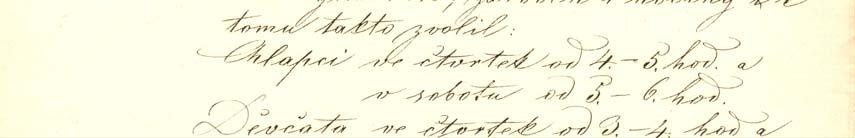 tomu takto zvolil:
Chlapci ve čtvrtek od 4.–5. hod. a
v sobotu od 5.–6. hod.
Děvčata ve čtvrtek od 3.–4. hod a